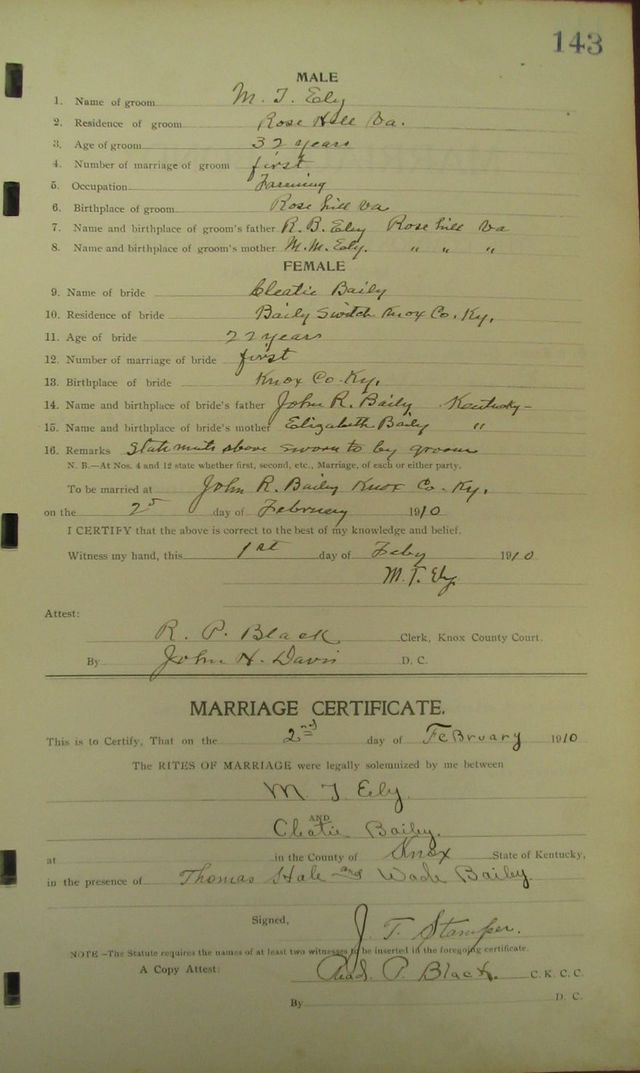 143
MALE
1. Name of groom M. T. Ely
2. Residence of groom Rose Hill Va.
3. Age of groom 32 years
4. Number of marriage of groom first
5. Occupation Farming
6. Birthplace of groom Rose hill Va
7. Name and birthplace of groom's father R. B. Ely Rose hill Va
8. Name and birthplace of groom's mother M. M. Ely. " " "
FEMALE
9. Name of bride Cleatie Baily
10. Residence of bride Baily Switch Knox Co. Ky.
11. Age of bride 22 years
12. Number of marriage of bride first
13. Birthplace of bride Knox Co. Ky.
14. Name and birthplace of bride's father John R. Baily Kentucky
15. Name and birthplace of bride's mother Elizabeth Baily "
16. Remarks Statments above sworn to by groom
N. B.—At Nos. 4 and 12 state whether first, second, etc., Marriage, of each or either party.
To be married at John R. Baily Knox Co. Ky.
on the day of February 1910
I CERTIFY that the above is correct to the best of my knowledge and belief.
Witness my hand, this 1st day of Feby 1910
M. T. Ely
Attest:
R. P. Black Clerk, Knox County Court.
By John H. Davis D. C.
MARRIAGE CERTIFICATE.
This is to Certify, That on the 2nd day of February 1910
The RITES OF MARRIAGE were legally solemnized by me between
M T Ely
AND
Cleatie Bailey.
at in the County of Knox State of Kentucky,
in the presence of Thomas Hale and Wade Bailey.
Signed,
J. T. Stamper.
NOTE—The Statute requires the names of at least two witnesses to be inserted in the foregoing certificate.
A Copy Attest: P. Black C. K. C. C.
By D. C.